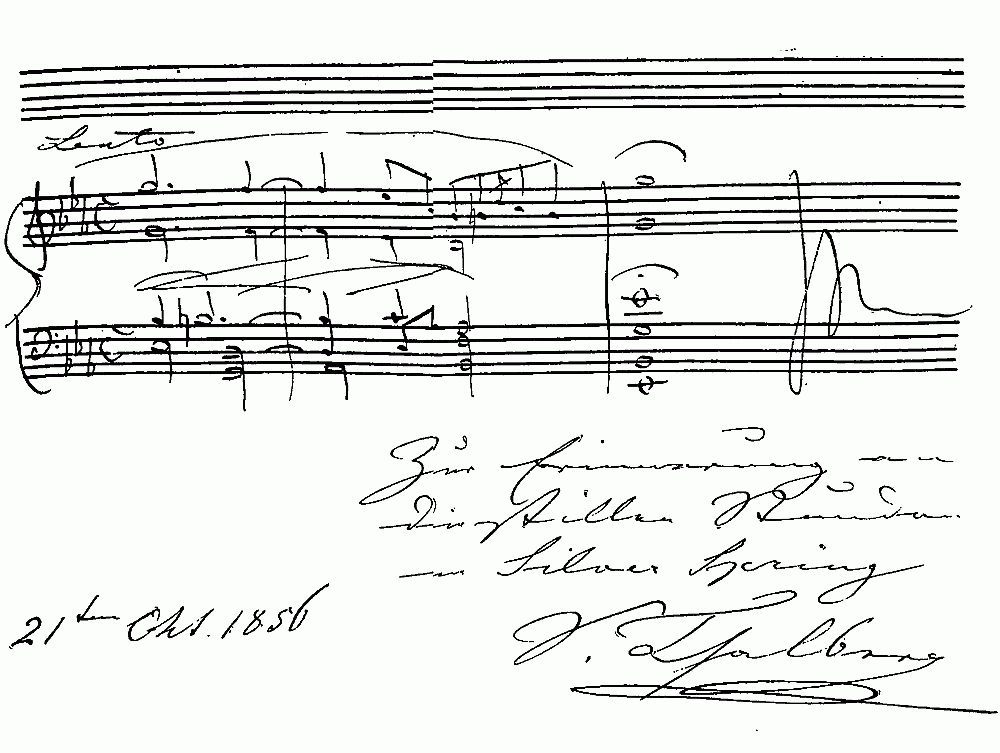 Lento
Zur Erinnerung an
die stillen Stunden
in Silver Spring
21ten Okt. 1856
S. Thalberg